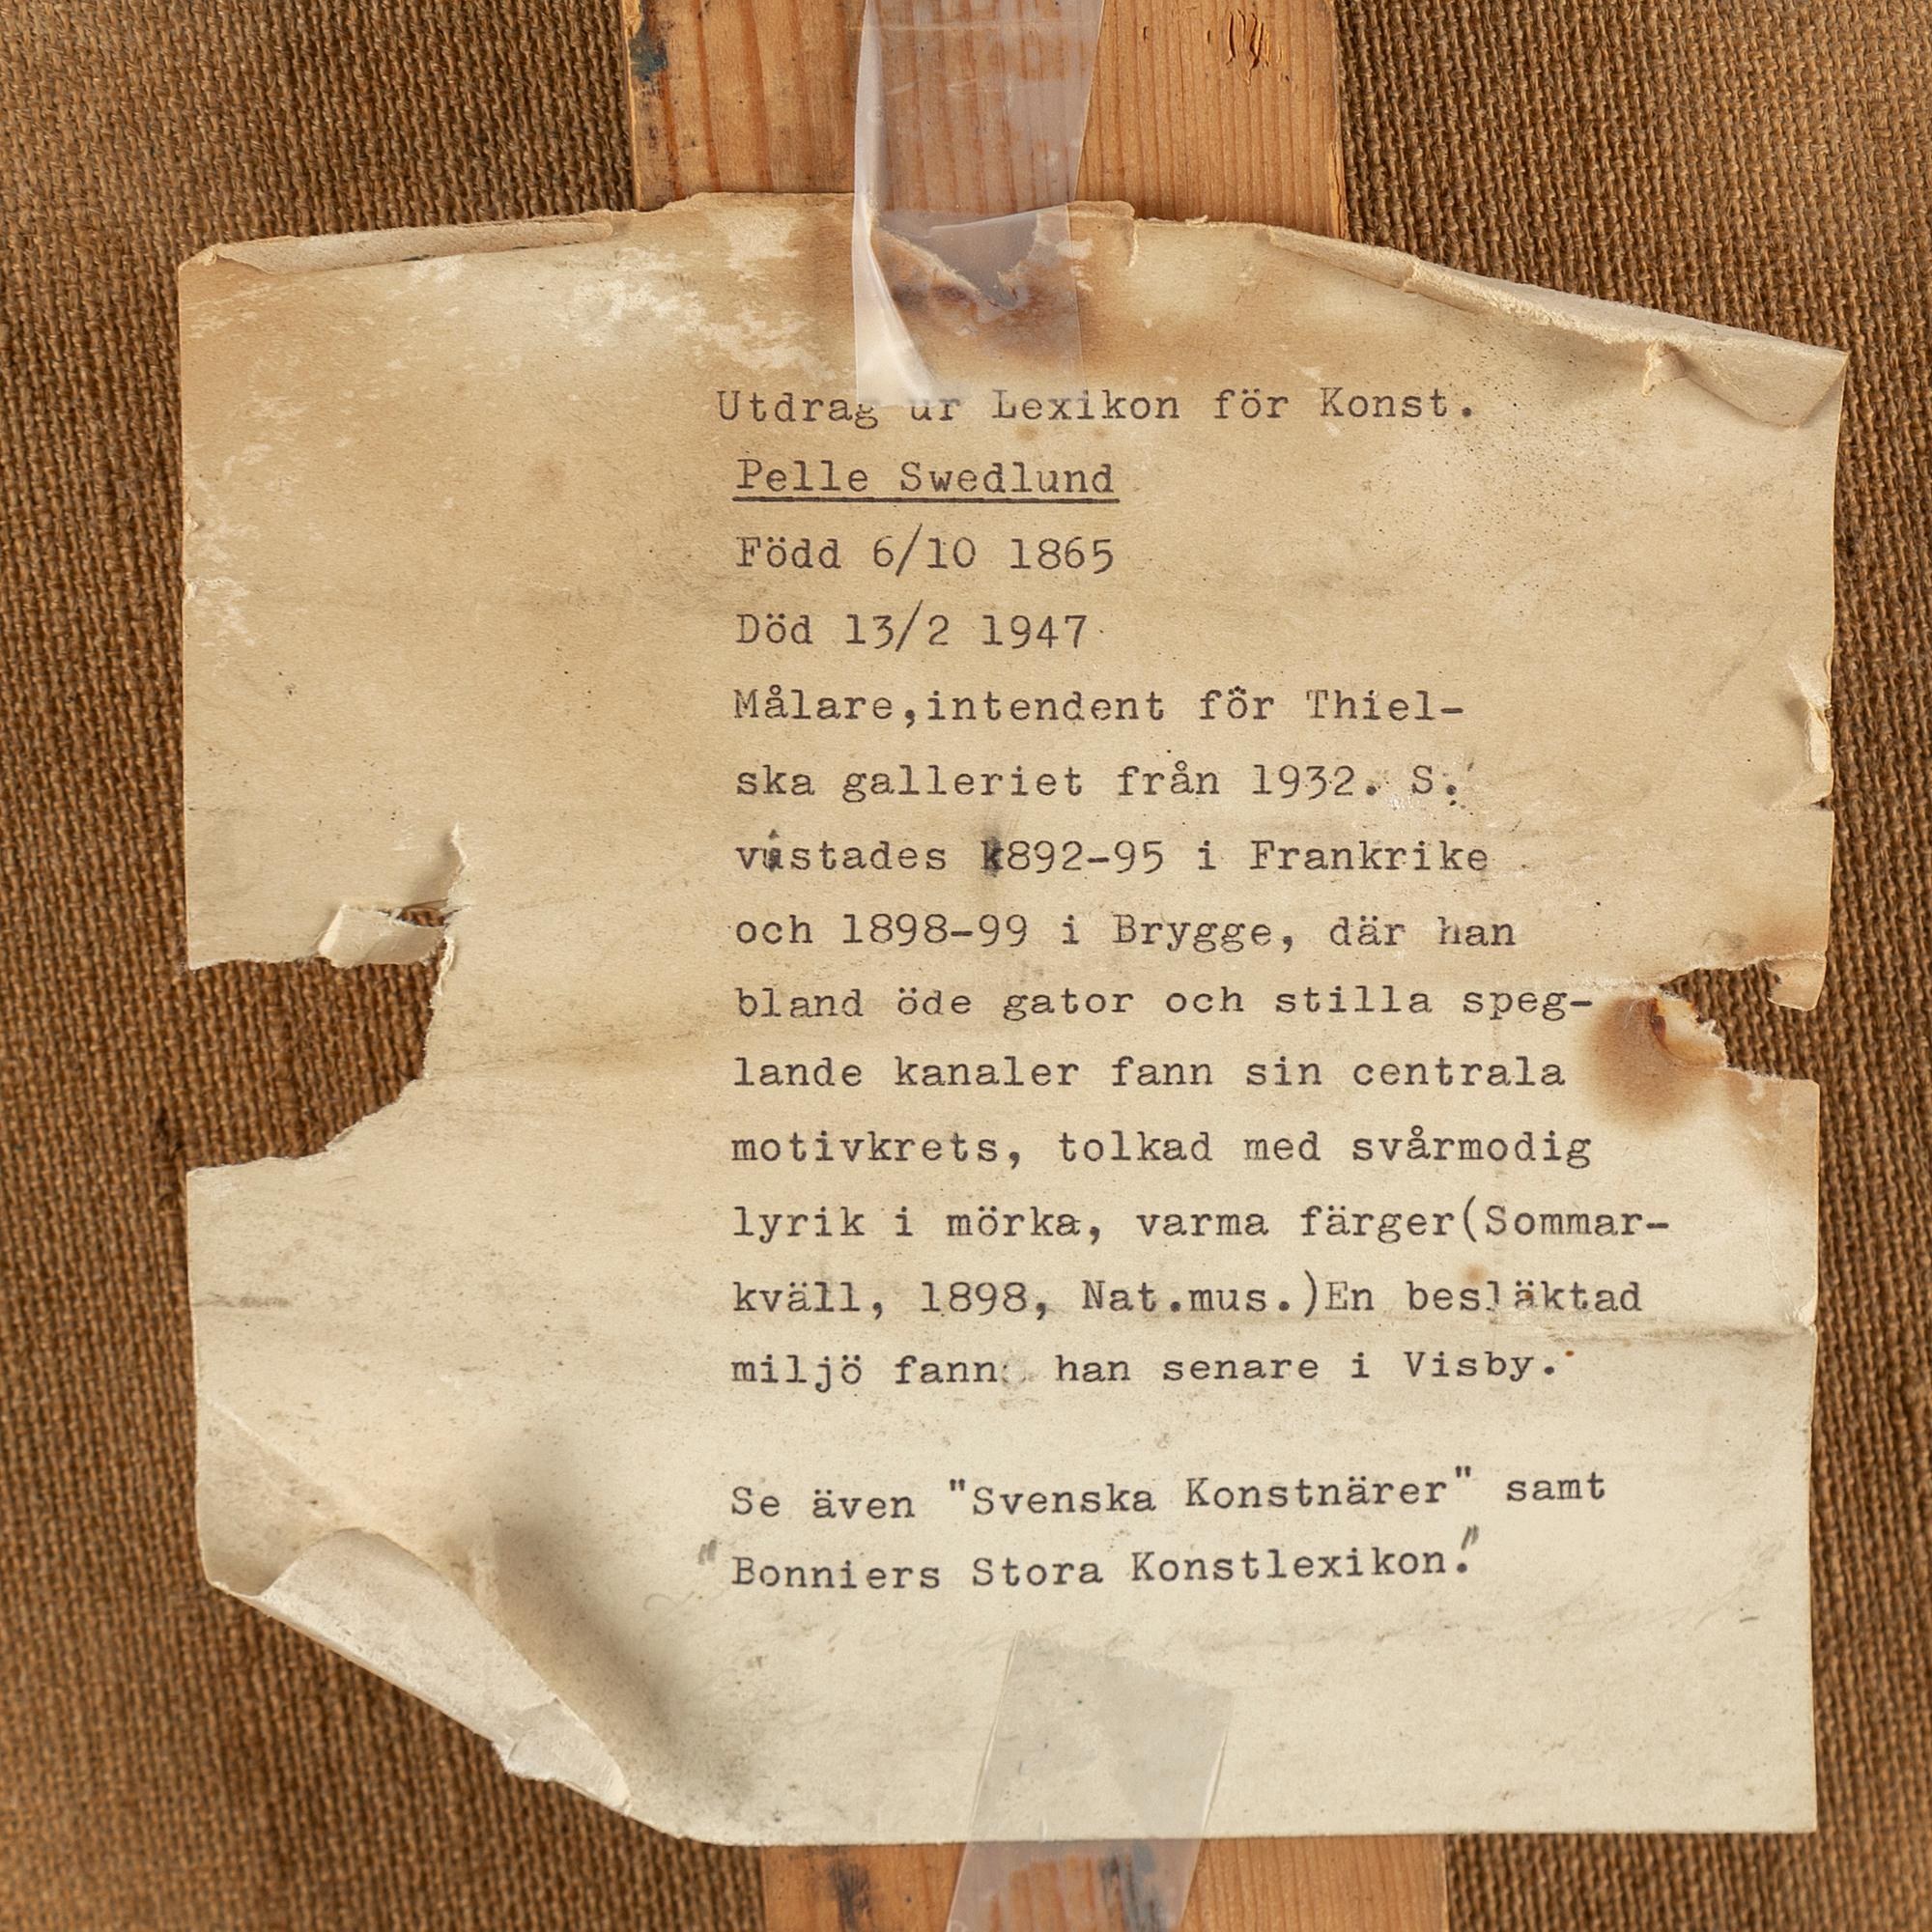 Utdrag ur Lexikon för Konst.
Pelle Swedlund
Född 6/10 1865
Död 13/2 1947
Målare,intendent för Thiel-
ska galleriet från 1932. S.
vistades 1892-95 i Frankrike
och 1898-99 i Brygge, där han
bland öde gator och stilla speg-
lande kanaler fann sin centrala
motivkrets, tolkad med svårmodig
lyrik i mörka, varma färger(Sommar-
kväll, 1898, Nat.mus.)En besläktad
miljö fann han senare i Visby.
Se även "Svenska Konstnärer" samt
"Bonniers Stora Konstlexikon."